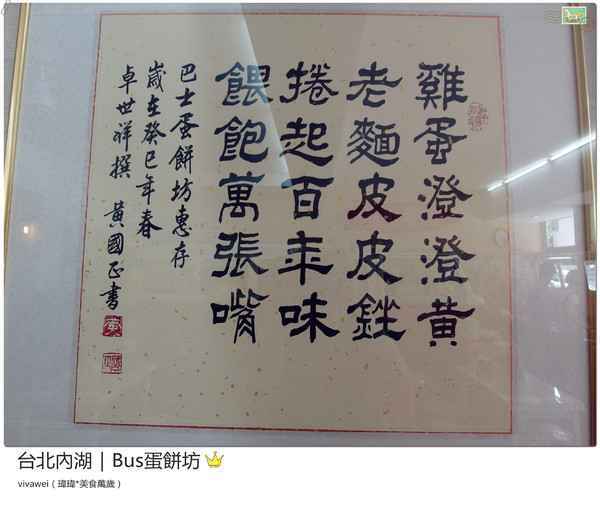 雞蛋澄澄黃
老麵皮皮銼
捲起百年味
餵飽萬張嘴
巴士蛋餅坊惠存
歲在癸巳年春
卓世祥撰 黃國正書
台北內湖|Bus蛋餅坊
vivawei(瑋瑋*美食萬歲)